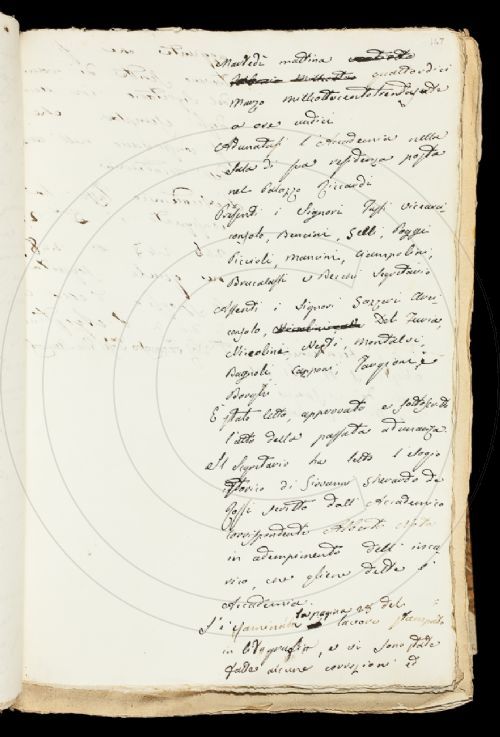 167
Martedì mattina
quattordici
Marzo milleottocentotrentasette
a ore undici
Adunatasi l'Accademia nella
Sala di sua residenza posta
nel Palazzo Riccardi
Presenti i Signori Vicearci-
consolo, Bencini, Selli, Poggi
Piccioli, Mancini, Ciampolini,
Brucalassi e Becchi Segretario
Assenti i Signori Gazzeri Arci-
consolo, Del Furia,
Niccolini, Nesti, Montalvi,
Bagnoli, Capponi, Targioni, e
Borghi
È stato letto, approvato e sottoscritto
l'atto della passata adunanza
Il Segretario ha letto l'elogio
istorico di Giovanni Gherardo de
Rossi scritto dall'Accademico
Corrispondente Alberti
in adempimento dell'inca-
rico, che gliene dette l'
Accademia.
S'è esaminata la pagina 25 del
lavoro stampato
in , e vi sono state
fatte alcune correzioni ed